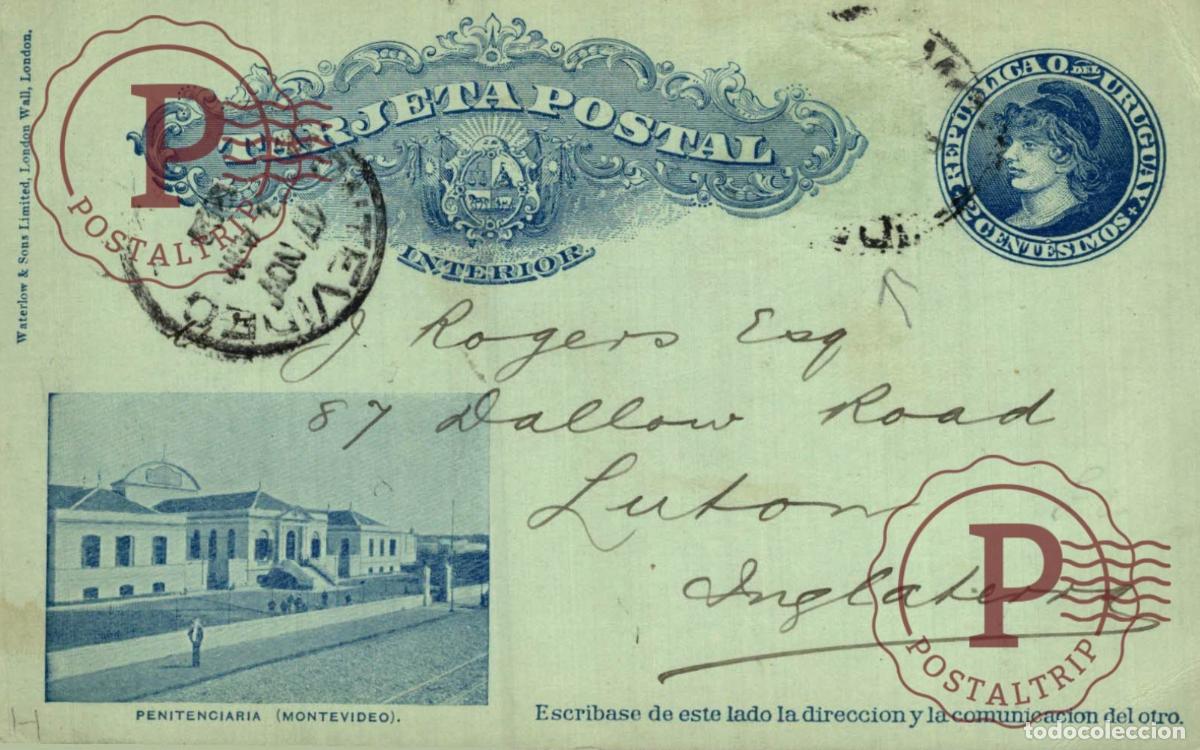 Waterlow & Sons Limited, London Wall, London.
TARJETA POSTAL
INTERIOR.
REPUBLICA O. DEL URUGUAY
2 CENTÉSIMOS
MONTEVIDEO
17 NOV
J. Rogers Esq
87 Dallow Road
Luton
Inglaterra
PENITENCIARIA (MONTEVIDEO).
Escribase de este lado la direccion y la comunicacion del otro.
H
P
POSTALTRIP
P
POSTALTRIP
todocoleccion